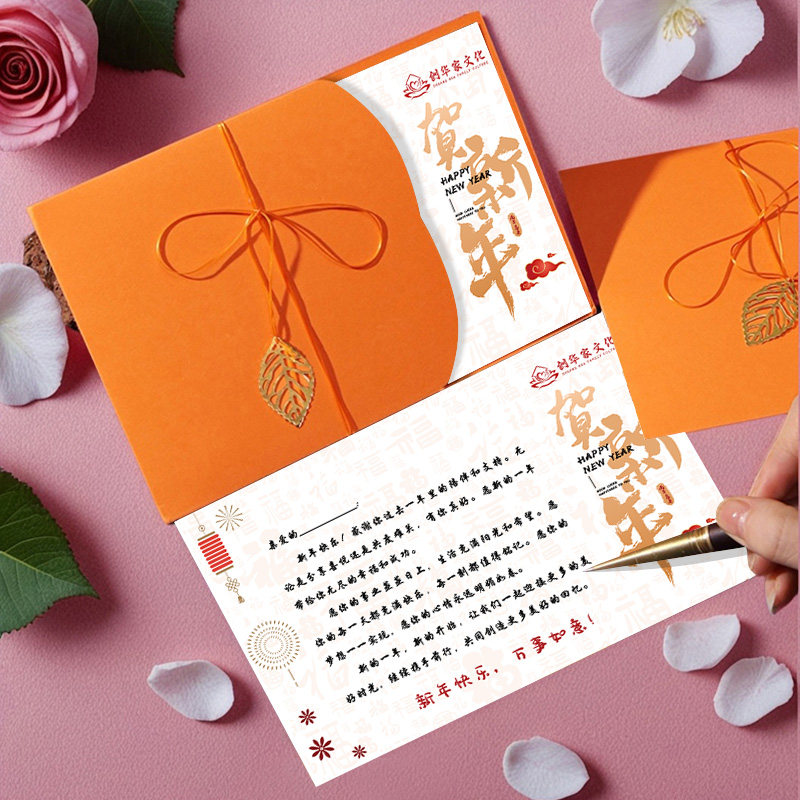 创华家文化
贺新年
HAPPY
NEW YEAR
创华家文化
贺新年
HAPPY
NEW YEAR
亲爱的________:
新年快乐!感谢你过去一年里的陪伴和支持。无
论是分享喜悦还是共度难关,有你真好。愿新的一年
带给你无尽的幸福和成功。
愿你的事业蒸蒸日上,生活充满阳光和希望。愿
你的每一天都充满快乐,每一刻都值得铭记。愿你的
梦想一一实现,愿你的心情永远明媚如春。
新的一年,新的开始,让我们一起迎接更多的美
好时光,继续携手前行,共同创造更多美好的回忆。
新年快乐,万事如意!